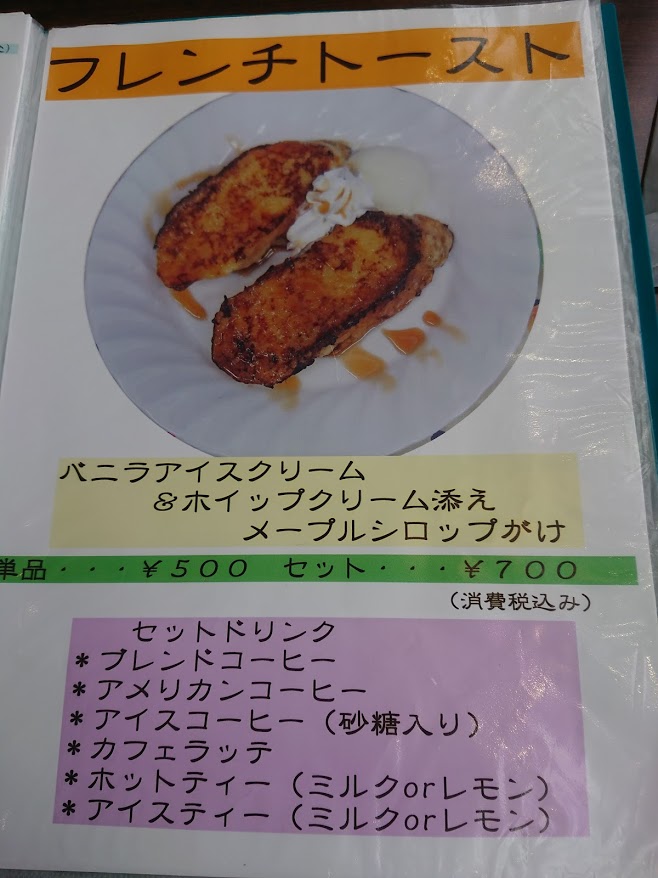 フレンチトースト
バニラアイスクリーム
&ホイップクリーム添え
メープルシロップがけ
単品・・・￥５００ セット・・・￥７００
(消費税込み)
セットドリンク
*ブレンドコーヒー
*アメリカンコーヒー
*アイスコーヒー(砂糖入り)
*カフェラッテ
*ホットティー(ミルクorレモン)
*アイスティー(ミルクorレモン)